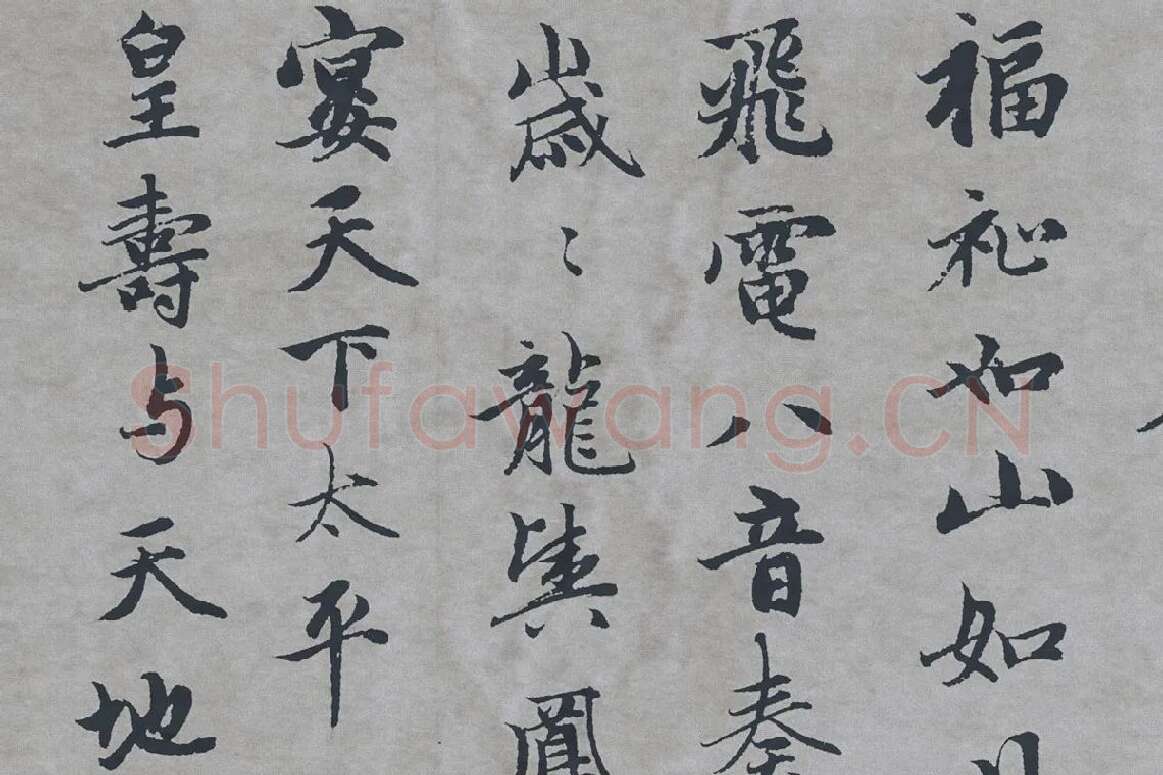 福祉如山如
飛電八音奏
歲〻龍鳳
宴天下太平
皇壽与天地
Shufawang.CN